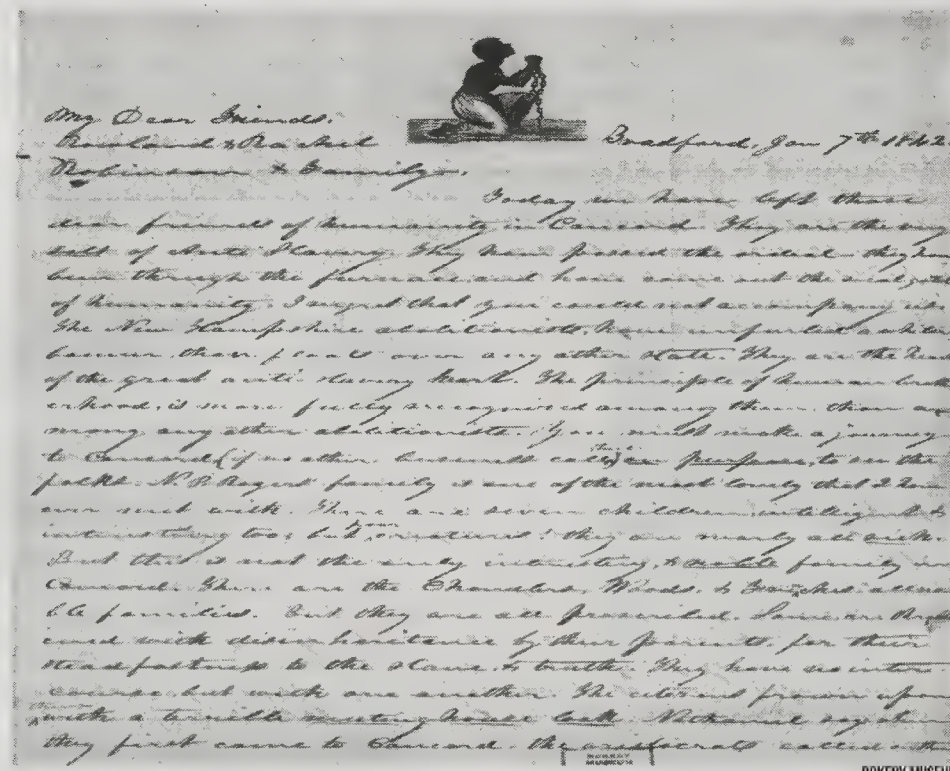 My Dear Friends.
Rowland & Rachel
Bradford, Jan 7th 1842.
Robinson & Family.
Today we have left those
dear friends of humanity in Concord. They are the very
salt of Anti Slavery. They have passed the ordeal they have
been through the furnace and have come out the real
of humanity. I regret that you could not accompany us
The New Hampshire abolitionists, have unfurled a
banner, than floats over any other state. They are the
of the great anti slavery heart. The principle of human broth
erhood, is more fully recognised among them, than a
mong any other abolitionists. You must make a journey
to Concord (if no other business call) on purpose, to see the
folks. N P Rogers family is one of the most lovely that I have
ever met with. There are seven children intelligent &
interesting too; but, poor creatures! they are nearly all sick.
But this is not the only interesting, & noble family in
Concord. There are the Chandlers, Woods, &
ble families. But they are all proscribed. Some are threat
ened with disinheritance by their parents, for their
steadfastness to the slave, & truth. They have no inter-
course but with one another. The citizens frown upon
them with a terrible meeting house look. Nathaniel says when
they first came to Concord, the aristocrats called
BAKERY MUSEUM